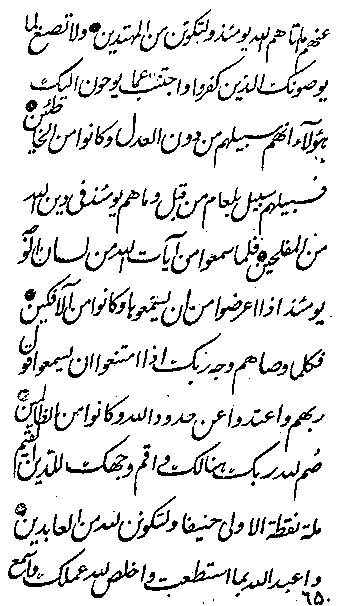 عنهم ما آتاهم الله يومئذ ولتكونن من المهتدين ولا تصغ لما
يوصونك الذين كفروا واجتنب عما يوحون اليك
هؤلاء انهم سبيلهم من دون العدل وكانوا من الخاطئين
فسبيلهم سبيل بلعام من قبل وما هم يومئذ في دين الله
من المفلحين فلما سمعوا من آيات الله من لسان
يومئذ اذا اعرضوا من ان يسمعوها وكانوا من الآفكين
فكلما وصاهم وجه ربك اذا امتنعوا ان يسمعوا قول
ربهم واعتدوا عن حدود الله وكانوا من الظالمين
صم لله ربك هنالك و اقم وجهك للدين القيم
ملة نقطة الاولى حنيفا ولتكونن لله من العابدين
واعبد الله بما استطعت و اخلص لله عملك واسمع
٦٥٠